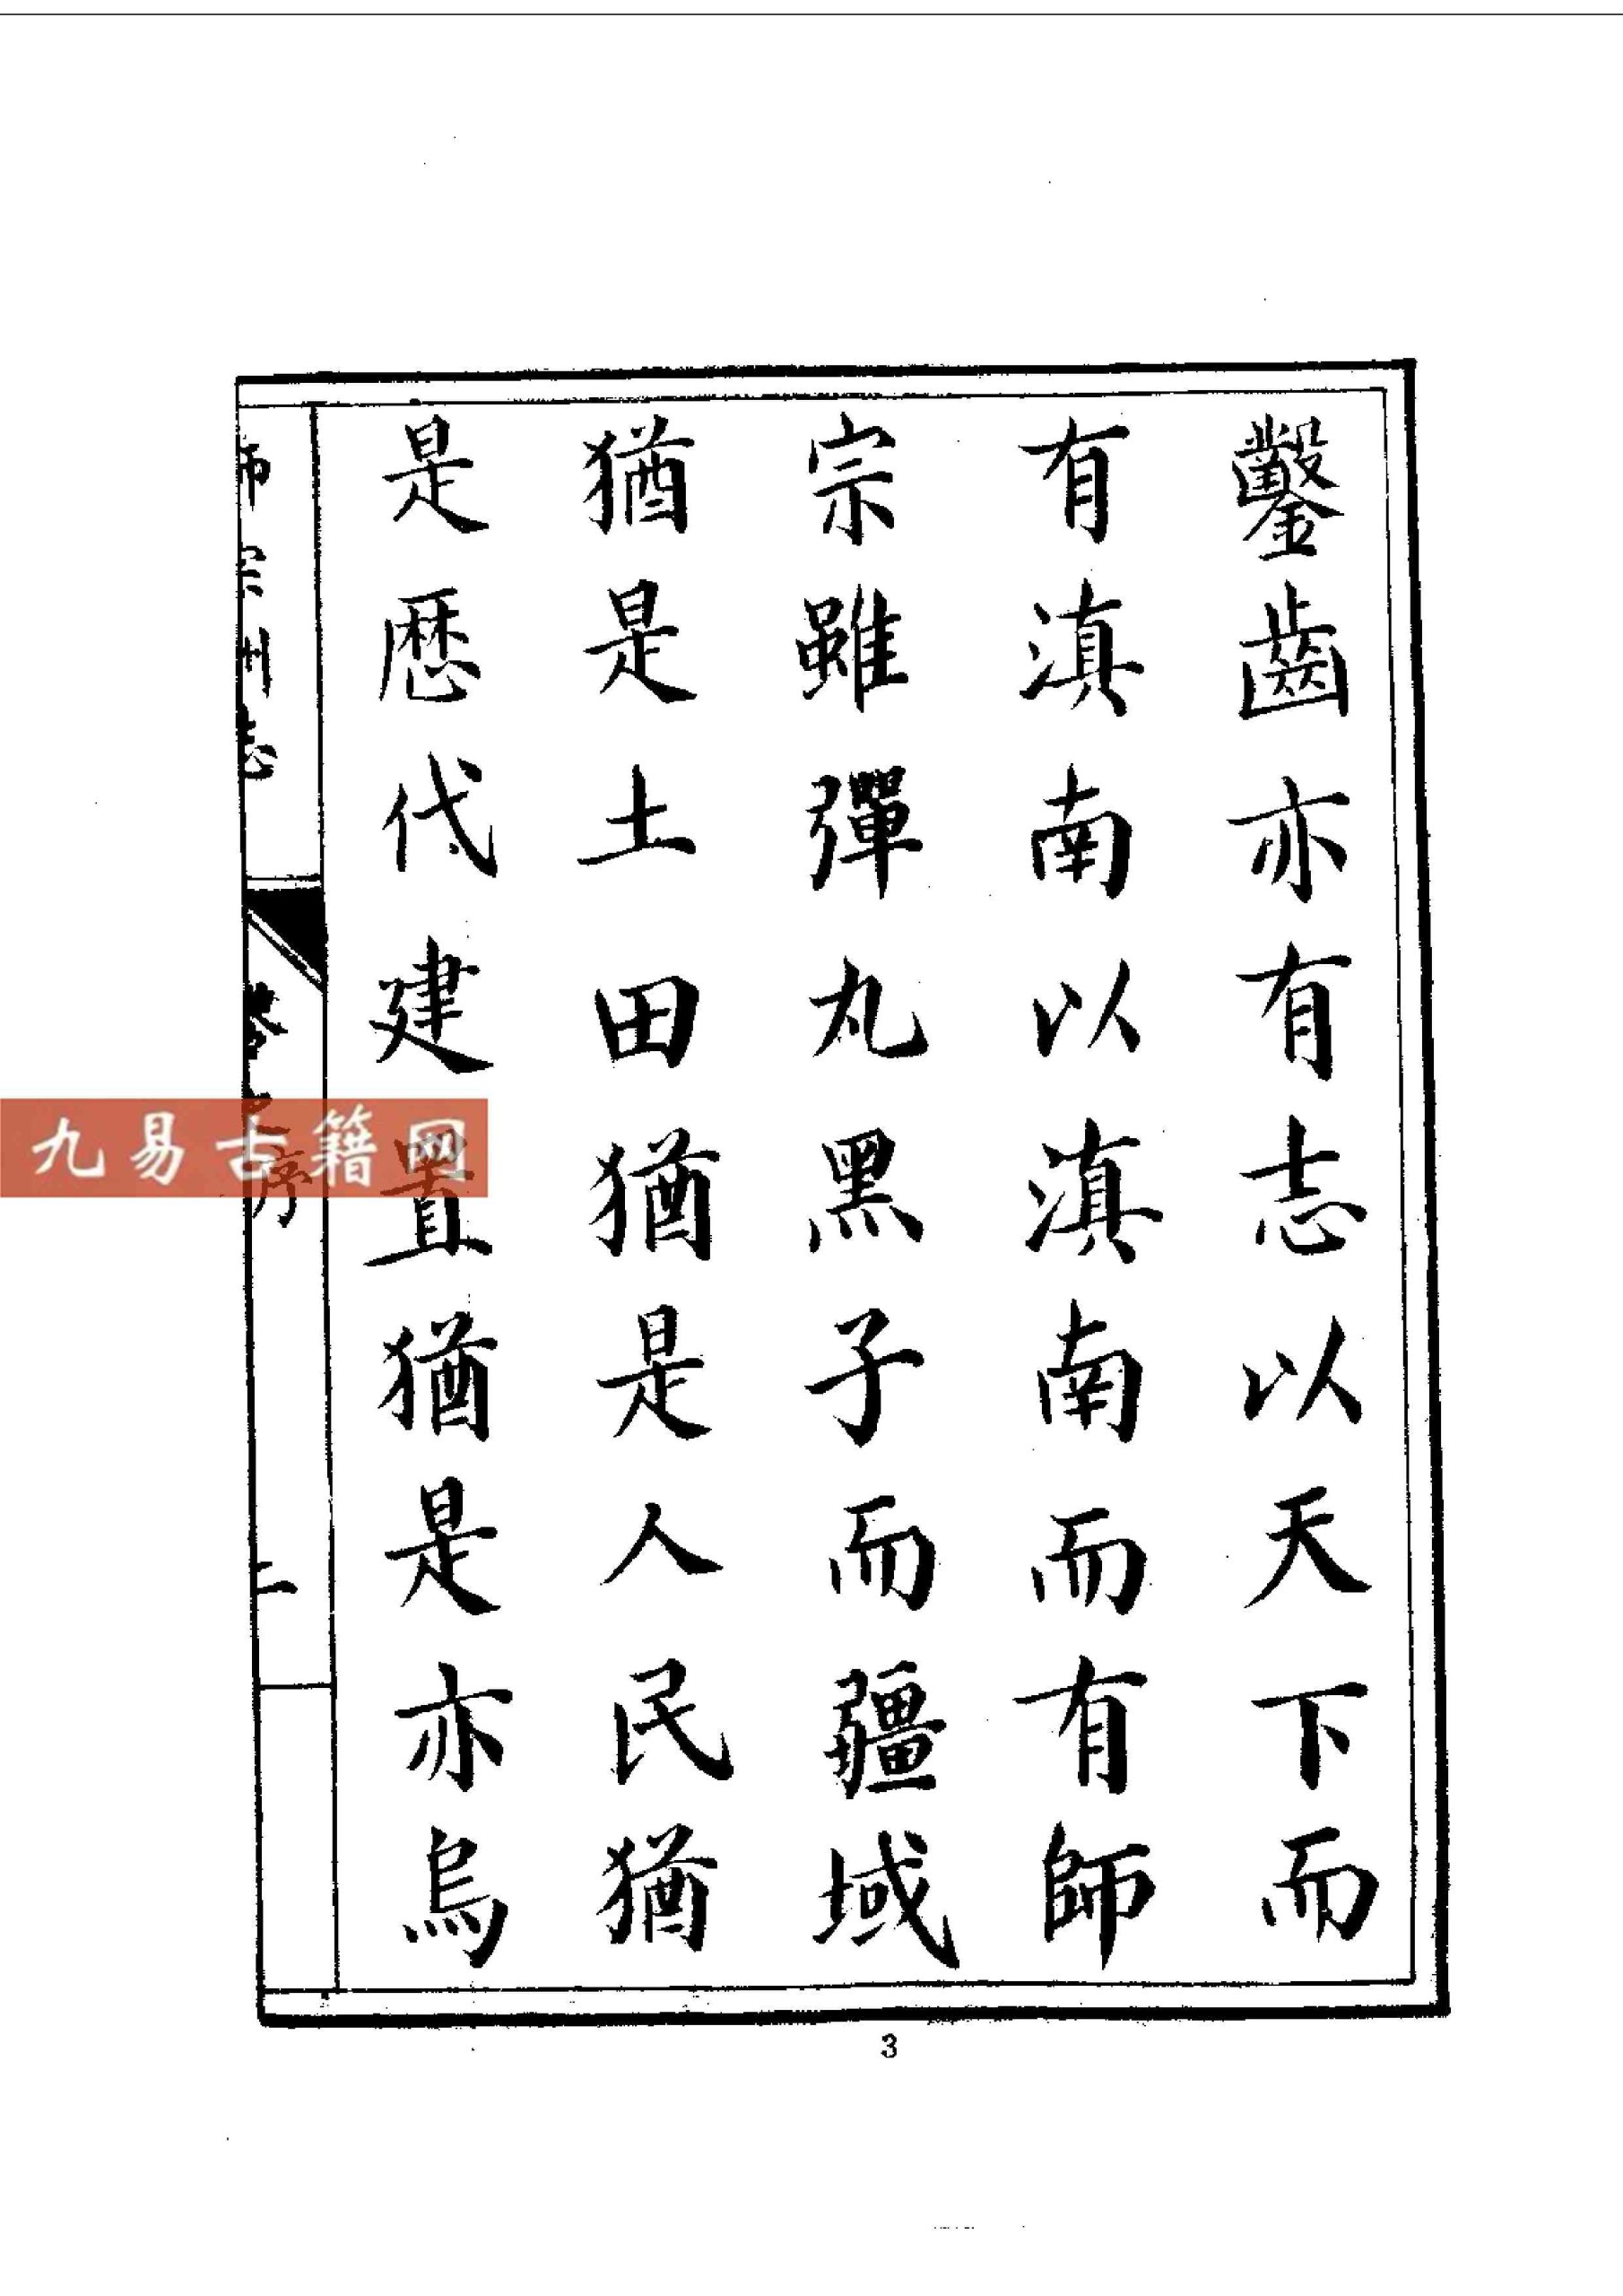 鑿齒亦有志以天下而
有滇南以滇南而有師
宗雖彈丸黑子而疆域
猶是土田猶是人民猶
是歷代建置猶是亦烏
師宗州志
序
二
九易古籍网
3